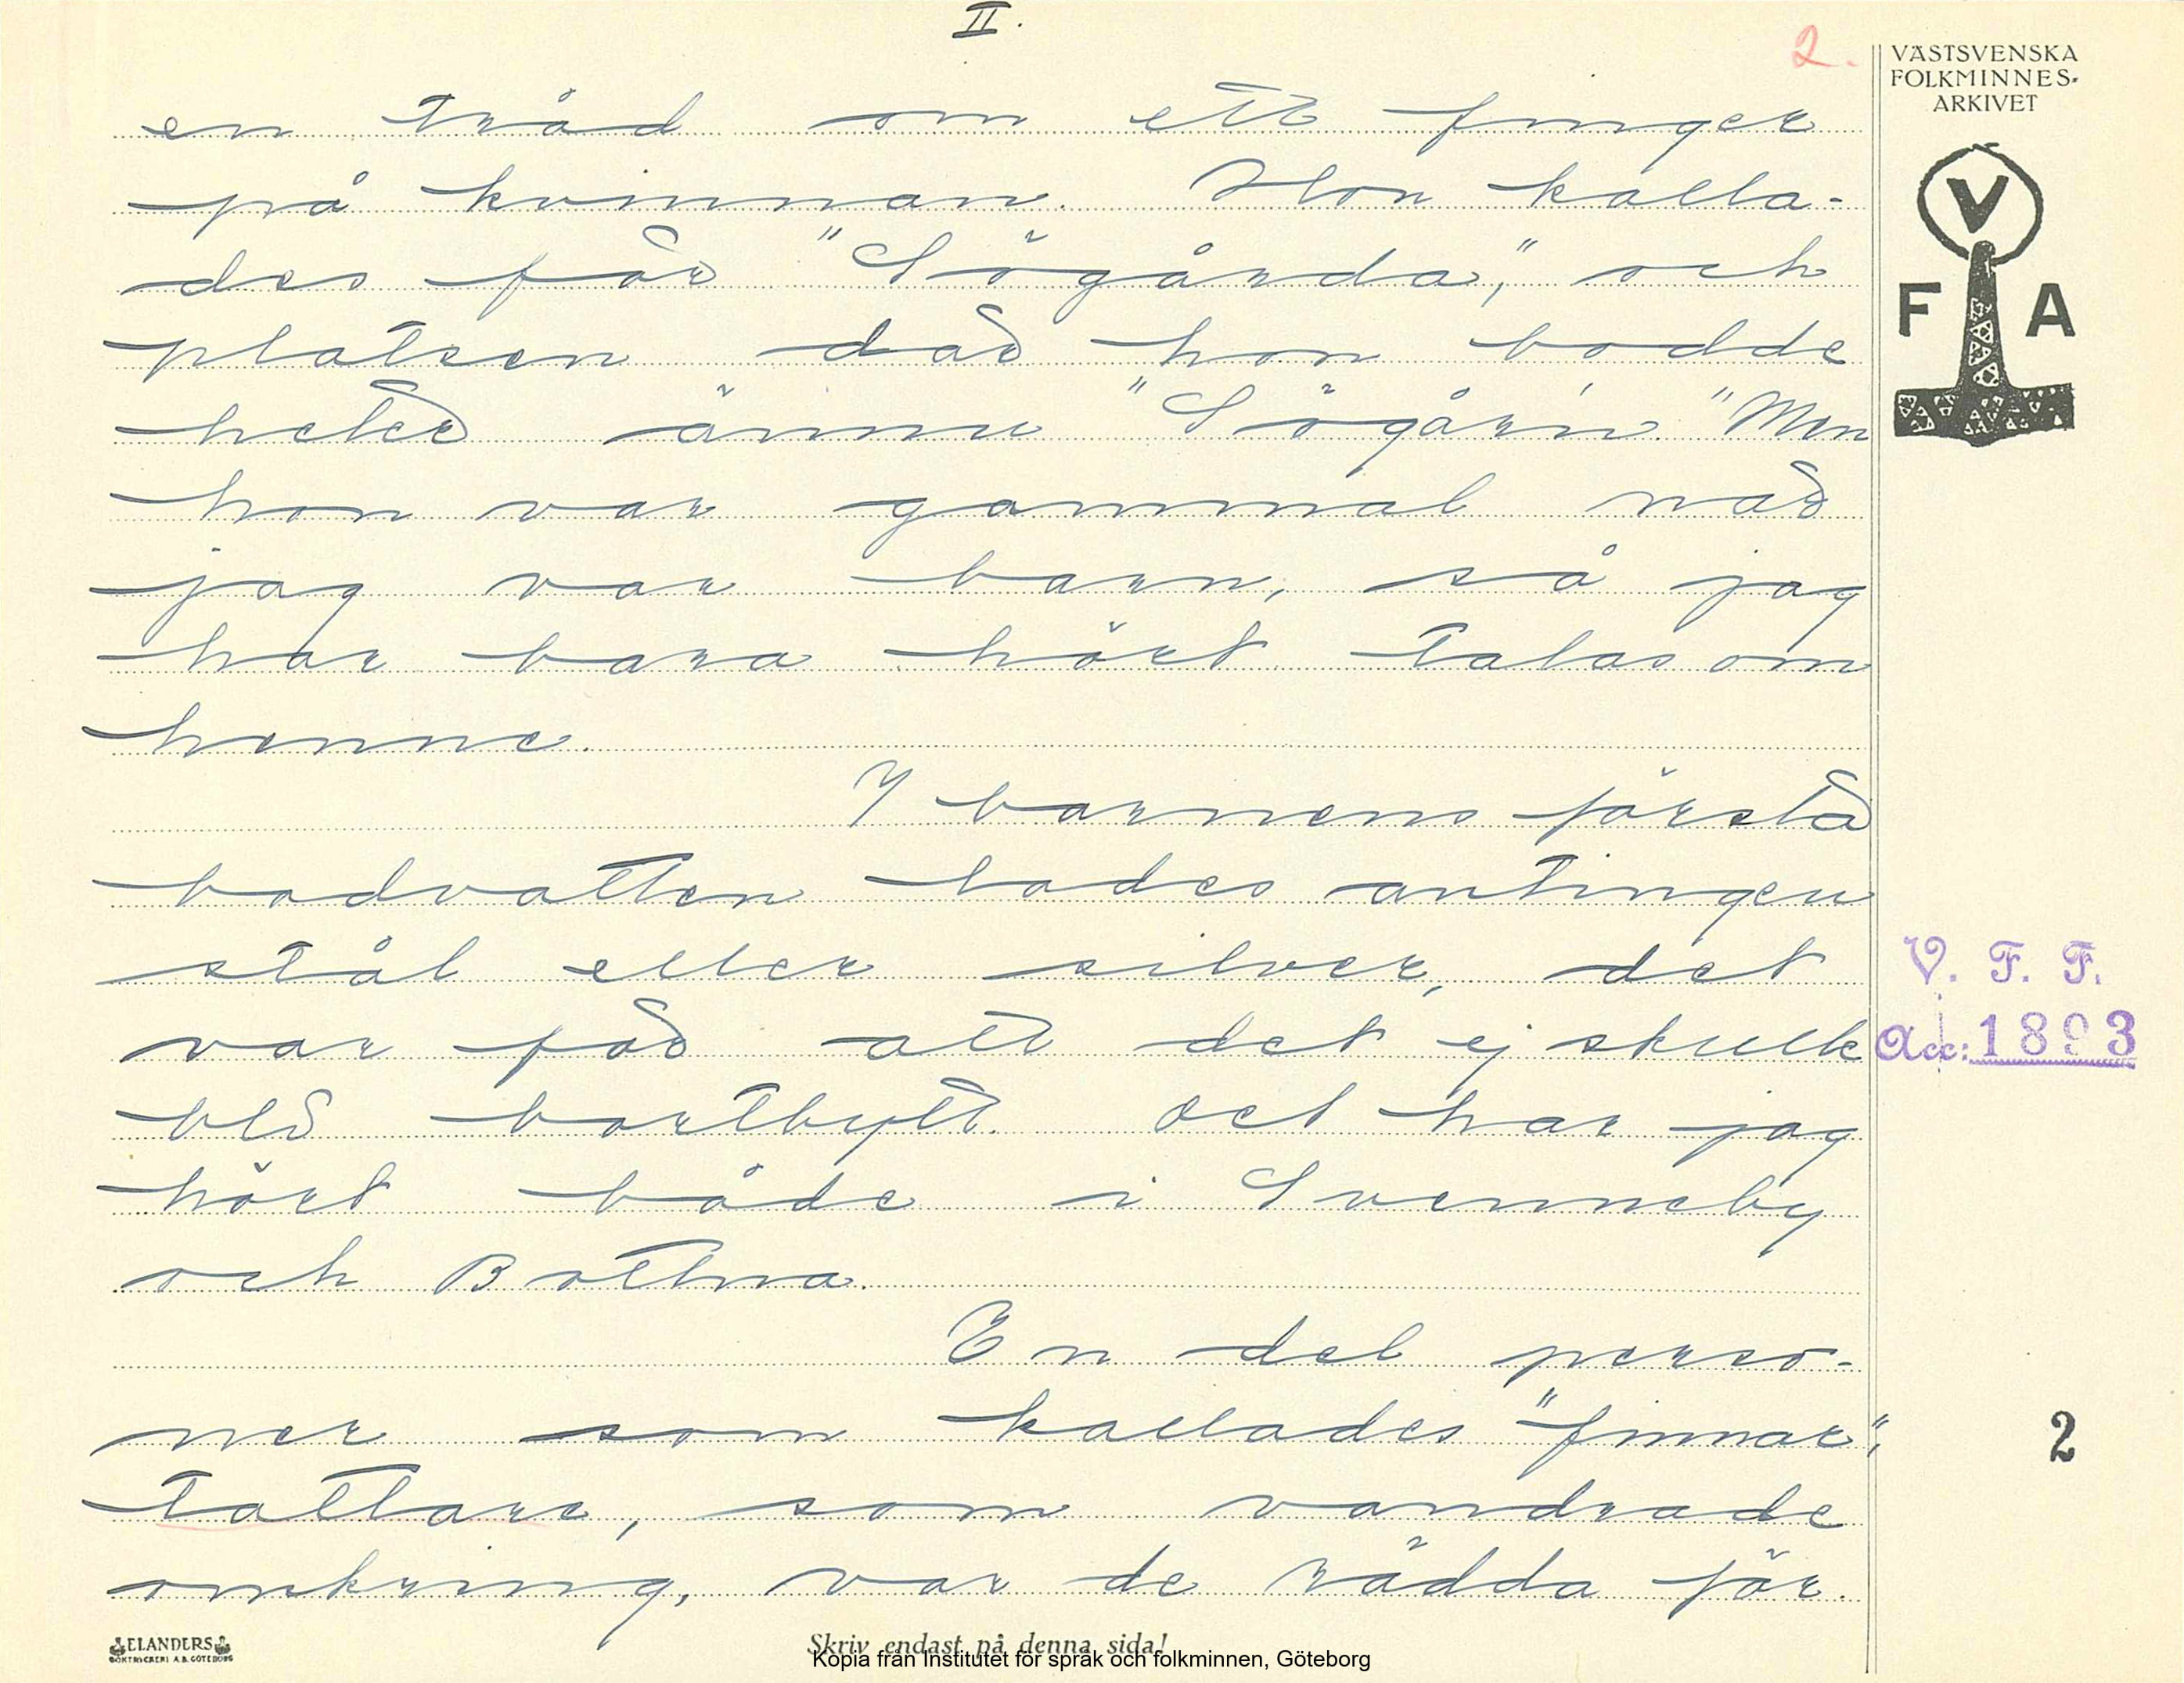 II.
2.
VÄSTSVENSKA
FOLKMINNES-
ARKIVET
V
F A
en tråd om ett finger
på kvinnan. Hon kalla-
des för "Sögårda", och
platsen där hon bodde
heter ännu "Sögår'n". Men
hon var gammal när
jag var barn, så jag
har bara hört talas om
henne.
I barnens första
badvatten lades antingen
stål eller silver, det
var för att det ej skulle
bli bortbytt. Det har jag
hört både i Svenneby
och Bottna.
En del perso-
ner som kallades "finnar",
tattare, som vandrade
omkring, var de rädda för.
V. F. F.
Acc: 1893
2
ELANDERS
BOKTRYCKERI A.B. GÖTEBORG
Skriv endast på denna sida!
Kopia från Institutet för språk och folkminnen, Göteborg